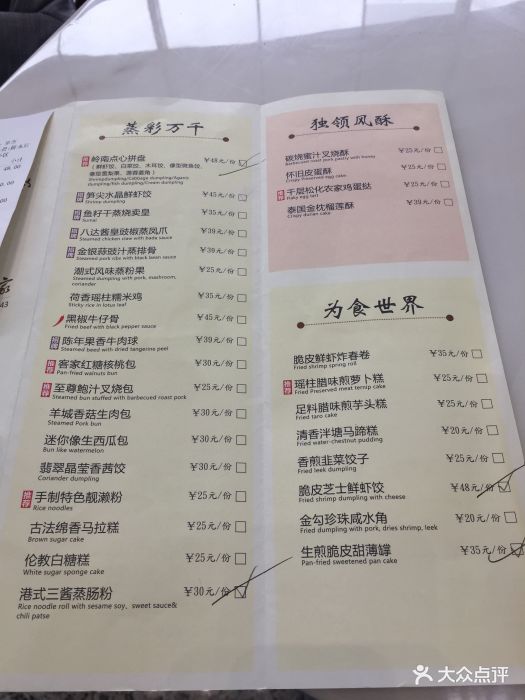 蒸彩万千
推荐 岭南点心拼盘 ￥48元/份
(鲜虾饺、白菜饺、木耳饺、像型潮鱼饺、
Shrimpdumpling/Cabbage dumpling/Agaric
dumpling/fish dumpling/Cream dumpling
笋尖水晶鲜虾饺 ￥45元/份
Shrimp dumpling
鱼籽干蒸烧卖皇 ￥35元/份
Sumai
八达酱皇豉椒蒸凤爪 ￥39元/份
Steamed chicken claw with bada sauce
金银蒜豉汁蒸排骨 ￥39元/份
Steamed pork ribs with black bean sauce
潮式风味蒸粉果 ￥25元/份
Steamed dumpling with pork, mashroom,
coriander
荷香瑶柱糯米鸡 ￥35元/份
Sticky rice in lotus leaf
黑椒牛仔骨 ￥45元/份
Fried beef with black pepper sauce
陈年果香牛肉球 ￥39元/份
Steamed beef with dried tangerine peel
推荐 客家红糖核桃包 ￥30元/份
Pan-fried walnuts bun
推荐 至尊鲍汁叉烧包 ￥25元/份
Steamed bun stuffed with barbecued roast pork
羊城香菇生肉包 ￥30元/份
Steamed Pork bun
迷你像生西瓜包 ￥30元/份
Bun like watermelon
翡翠晶莹香茜饺 ￥30元/份
Coriander dumpling
推荐 手制特色靓濑粉 ￥25元/份
Rice noodles
古法绵香马拉糕 ￥25元/份
Brown sugar cake
伦教白糖糕 ￥25元/份
White sugar sponge cake
港式三酱蒸肠粉 ￥30元/份
Rice noodle roll with sesame soy, sweet sauce&
chili patse
独领风酥
碳烧蜜汁叉烧酥 ￥35元/份
Barbecued roast pork pastry with honey
怀旧皮蛋酥 ￥25元/份
Crispy Preserved egg cake
推荐 千层松化农家鸡蛋挞 ￥25元/份
Flaky egg tart
泰国金枕榴莲酥 ￥39元/份
Crispy durian cake
为食世界
脆皮鲜虾炸春卷 ￥35元/份
Fried shrimp spring roll
推荐 瑶柱腊味煎萝卜糕 ￥25元/份
Fried Preserved meat terrup cake
足料腊味煎芋头糕 ￥25元/份
Fried taro cake
清香泮塘马蹄糕 ￥20元/份
Fried water-chestnut pudding
香煎韭菜饺子 ￥25元/份
Fried leek dumpling
脆皮芝士鲜虾饺 ￥48元/份
Fried shrimp dumpling with cheese
金勾珍珠咸水角 ￥20元/份
Fried dumpling with pork, dries shrimp, leek
生煎脆皮甜薄罉 ￥35元/份
Pan-fried sweetened pan cake
大众点评